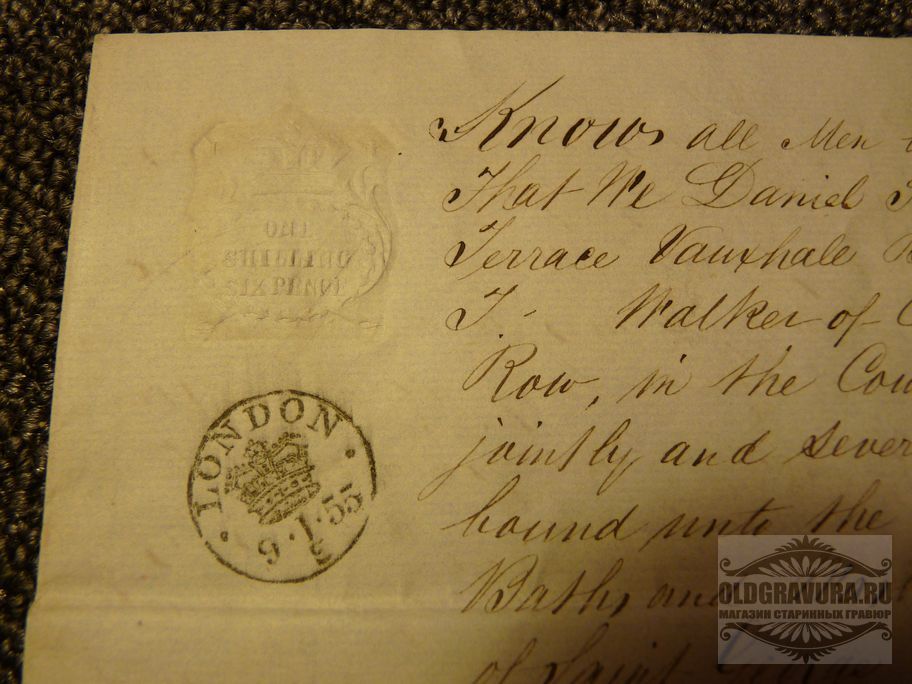 ONE
SHILLING
SIX PENCE
LONDON
9.1.55
Know all Men
That We Daniel
Terrace Vauxhall
T. Walker of
Row, in the Cou
jointly and sever
bound unto the
Baths and
of Saint
OLDGRAVURA.RU
МАГАЗИН СТАРИННЫХ ГРАВЮР